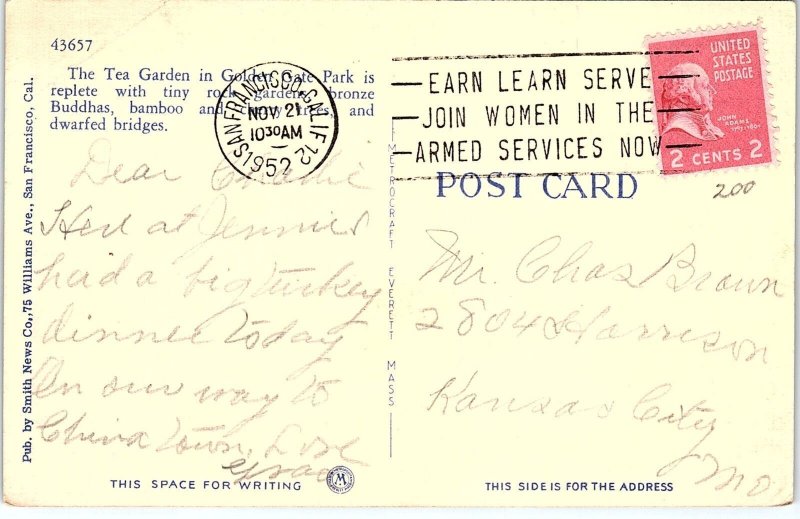 43657
The Tea Garden in Golden Gate Park is
replete with tiny rock gardens, bronze
Buddhas, bamboo and trees, and
dwarfed bridges.
Pub. by Smith News Co., 75 Williams Ave., San Francisco, Cal.
SAN FRANCISCO, CALIF. 12
NOV 21
10 30 AM
1952
EARN LEARN SERVE
JOIN WOMEN IN THE
ARMED SERVICES NOW
UNITED
STATES
POSTAGE
JOHN
ADAMS
2 CENTS 2
200
POST CARD
METROCRAFT EVERETT MASS
Dear Charlie
Here at Jennie's
had a big turkey
dinner today
On our way to
China town, Love
Mr. Chas Brown
2804 Harrison
Kansas City
Mo
THIS SPACE FOR WRITING
THIS SIDE IS FOR THE ADDRESS